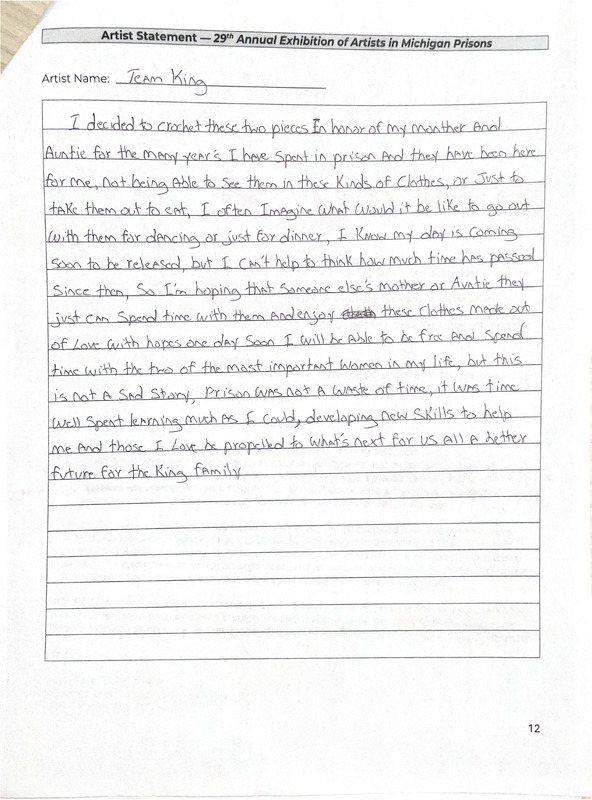 Artist Statement — 29th Annual Exhibition of Artists in Michigan Prisons
Artist Name: Team King
I decided to crochet these two pieces In honor of my monther And
Auntie for the many year's I have spent in prison And they have been here
for me, not being Able to see them in these Kinds of Clothes, or Just to
take them out to eat, I often Imagine what would it be like to go out
with them for dancing or just for dinner, I Know my day is coming
soon to be released, but I can't help to think how much time has passed
Since then, So I'm hoping that someone else's mother or Auntie they
just can spend time with them And enjoy these Clothes made out
of Love with hopes one day soon I will be Able to be free And spend
time with the two of the most important women in my life, but this
is not A Sad Story, Prison was not A waste of time, it was time
well spent learning much As I could, developing new Skills to help
me And those I Love be propelled to what's next for us All A better
future for the King family
12